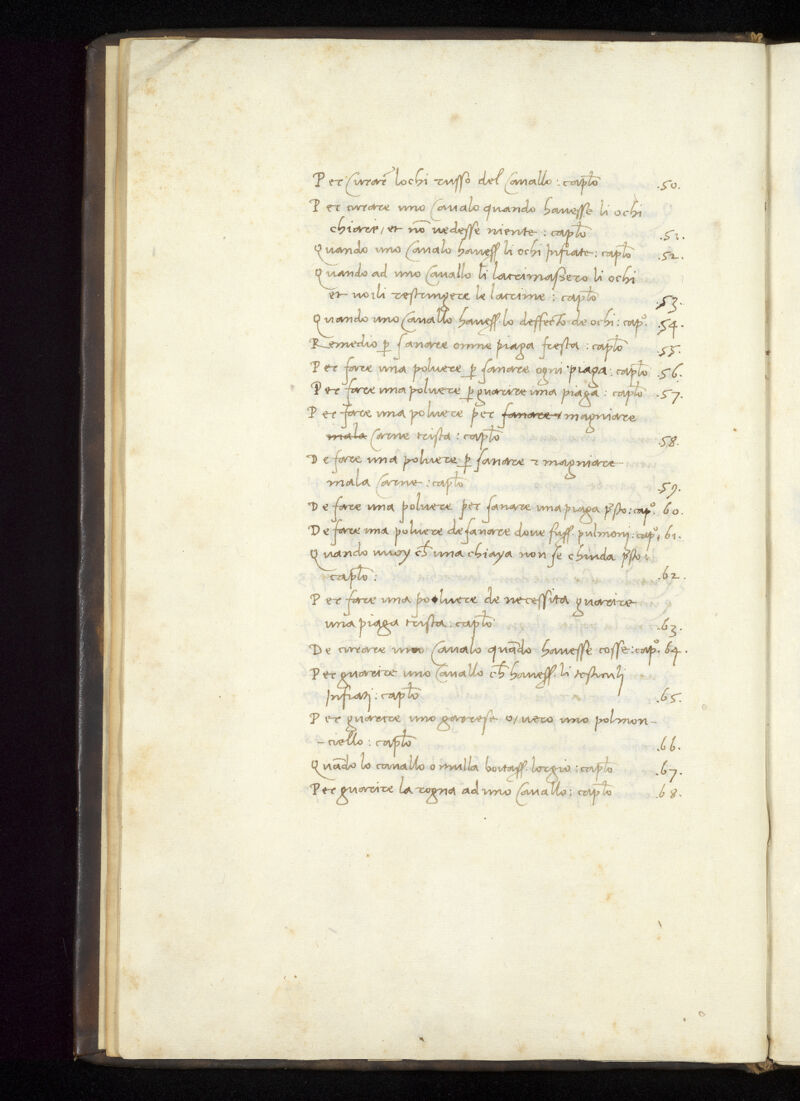 Per Curar lochi russo del Cavallo : caplo .50.
Per curare uno Cavalo quando havesse li ochi
chiare / et nõ vedesse niente : caplo .51.
Quando uno Cavalo havess li ochi Infiate : caplo .52.
Quando ad uno Cavallo li lacrimassero li ochi
et voili restringere le lacrime : caplo .53.
Quando uno Cavallo havess lo deffecto de ochi : capº. .54.
Remedio p sanare omne piaga fresca : caplo .55.
Per fare una polvere p sanare ogni piaga : caplo .56.
Per fare una polvere p guarire una piaga : caplo .57.
Per fare una polvere per sanare magniare
mala Carne trista : caplo .58.
De fare una polvere p sanare & magniare
mala Carne : caplo .59.
De fare una polvere per sanare una piaga psto : capº. 60.
De fare una polvere de sanare dove fuss pulmoni : capº. 61.
Quando vuoy ch una chiaya non se chiuda psto :
caplo : .62.
Per fare una polvere de necessita guarire
una piaga trista : caplo .63.
De curare uno Cavalo quãdo havesse tosse : capº. 64.
Per guarire uno Cavallo ch havess li testiculi
Infiati : caplo .65.
Per guarire uno garrese o / vero uno polmon-
-ciello : caplo .66.
Quãdo lo cavallo o mulla boitass lorgio : caplo .67.
Per guarire la rogna ad uno Cavallo : caplo .68.